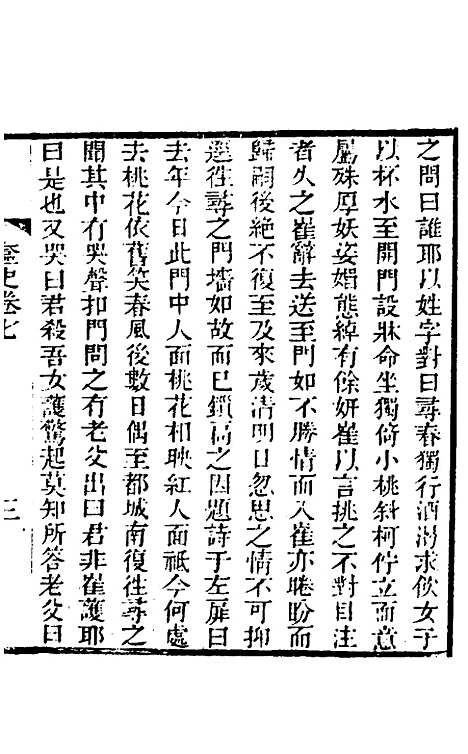 之問曰誰耶以姓字對曰尋春獨行酒渴求飲女子
以杯水至開門設牀命坐獨倚小桃斜柯佇立而意
屬殊厚妖姿媚態綽有餘妍崔以言挑之不對目注
者久之崔辭去送至門如不勝情而入崔亦睠盼而
歸嗣後絶不復至及來歲清明日忽思之情不可抑
逕往尋之門墻如故而已鎖扃之因題詩于左扉曰
去年今日此門中人面桃花相映紅人面祗今何處
去桃花依舊笑春風後數日偶至都城南復往尋之
聞其中有哭聲扣門問之有老父出曰君非崔護耶
曰是也又哭曰君殺吾女護驚起莫知所答老父曰
奩史卷七
三